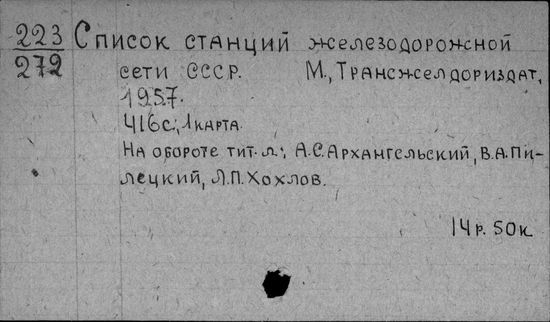 223 Список станций железодорожной
272 сети СССР. М., Трансжелдориздат,
1957.
416с., 1 карта.
На обороте тит. л.: А.С.Архангельский, В.А.Пи-
лецкий, Л.П.Хохлов.
14р. 50к